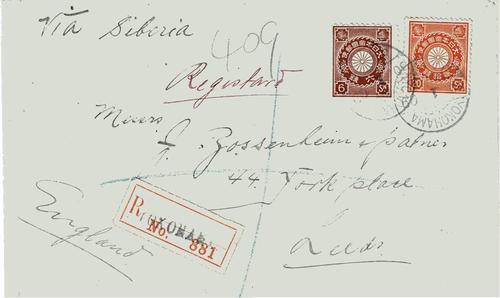 Via Siberia
409
Registard
Messrs
J. Zossenheim & patner
44 York place
Leeds
England
R YOKOHAMA
No. 881
6 Sn
20 Sn
YOKOHAMA